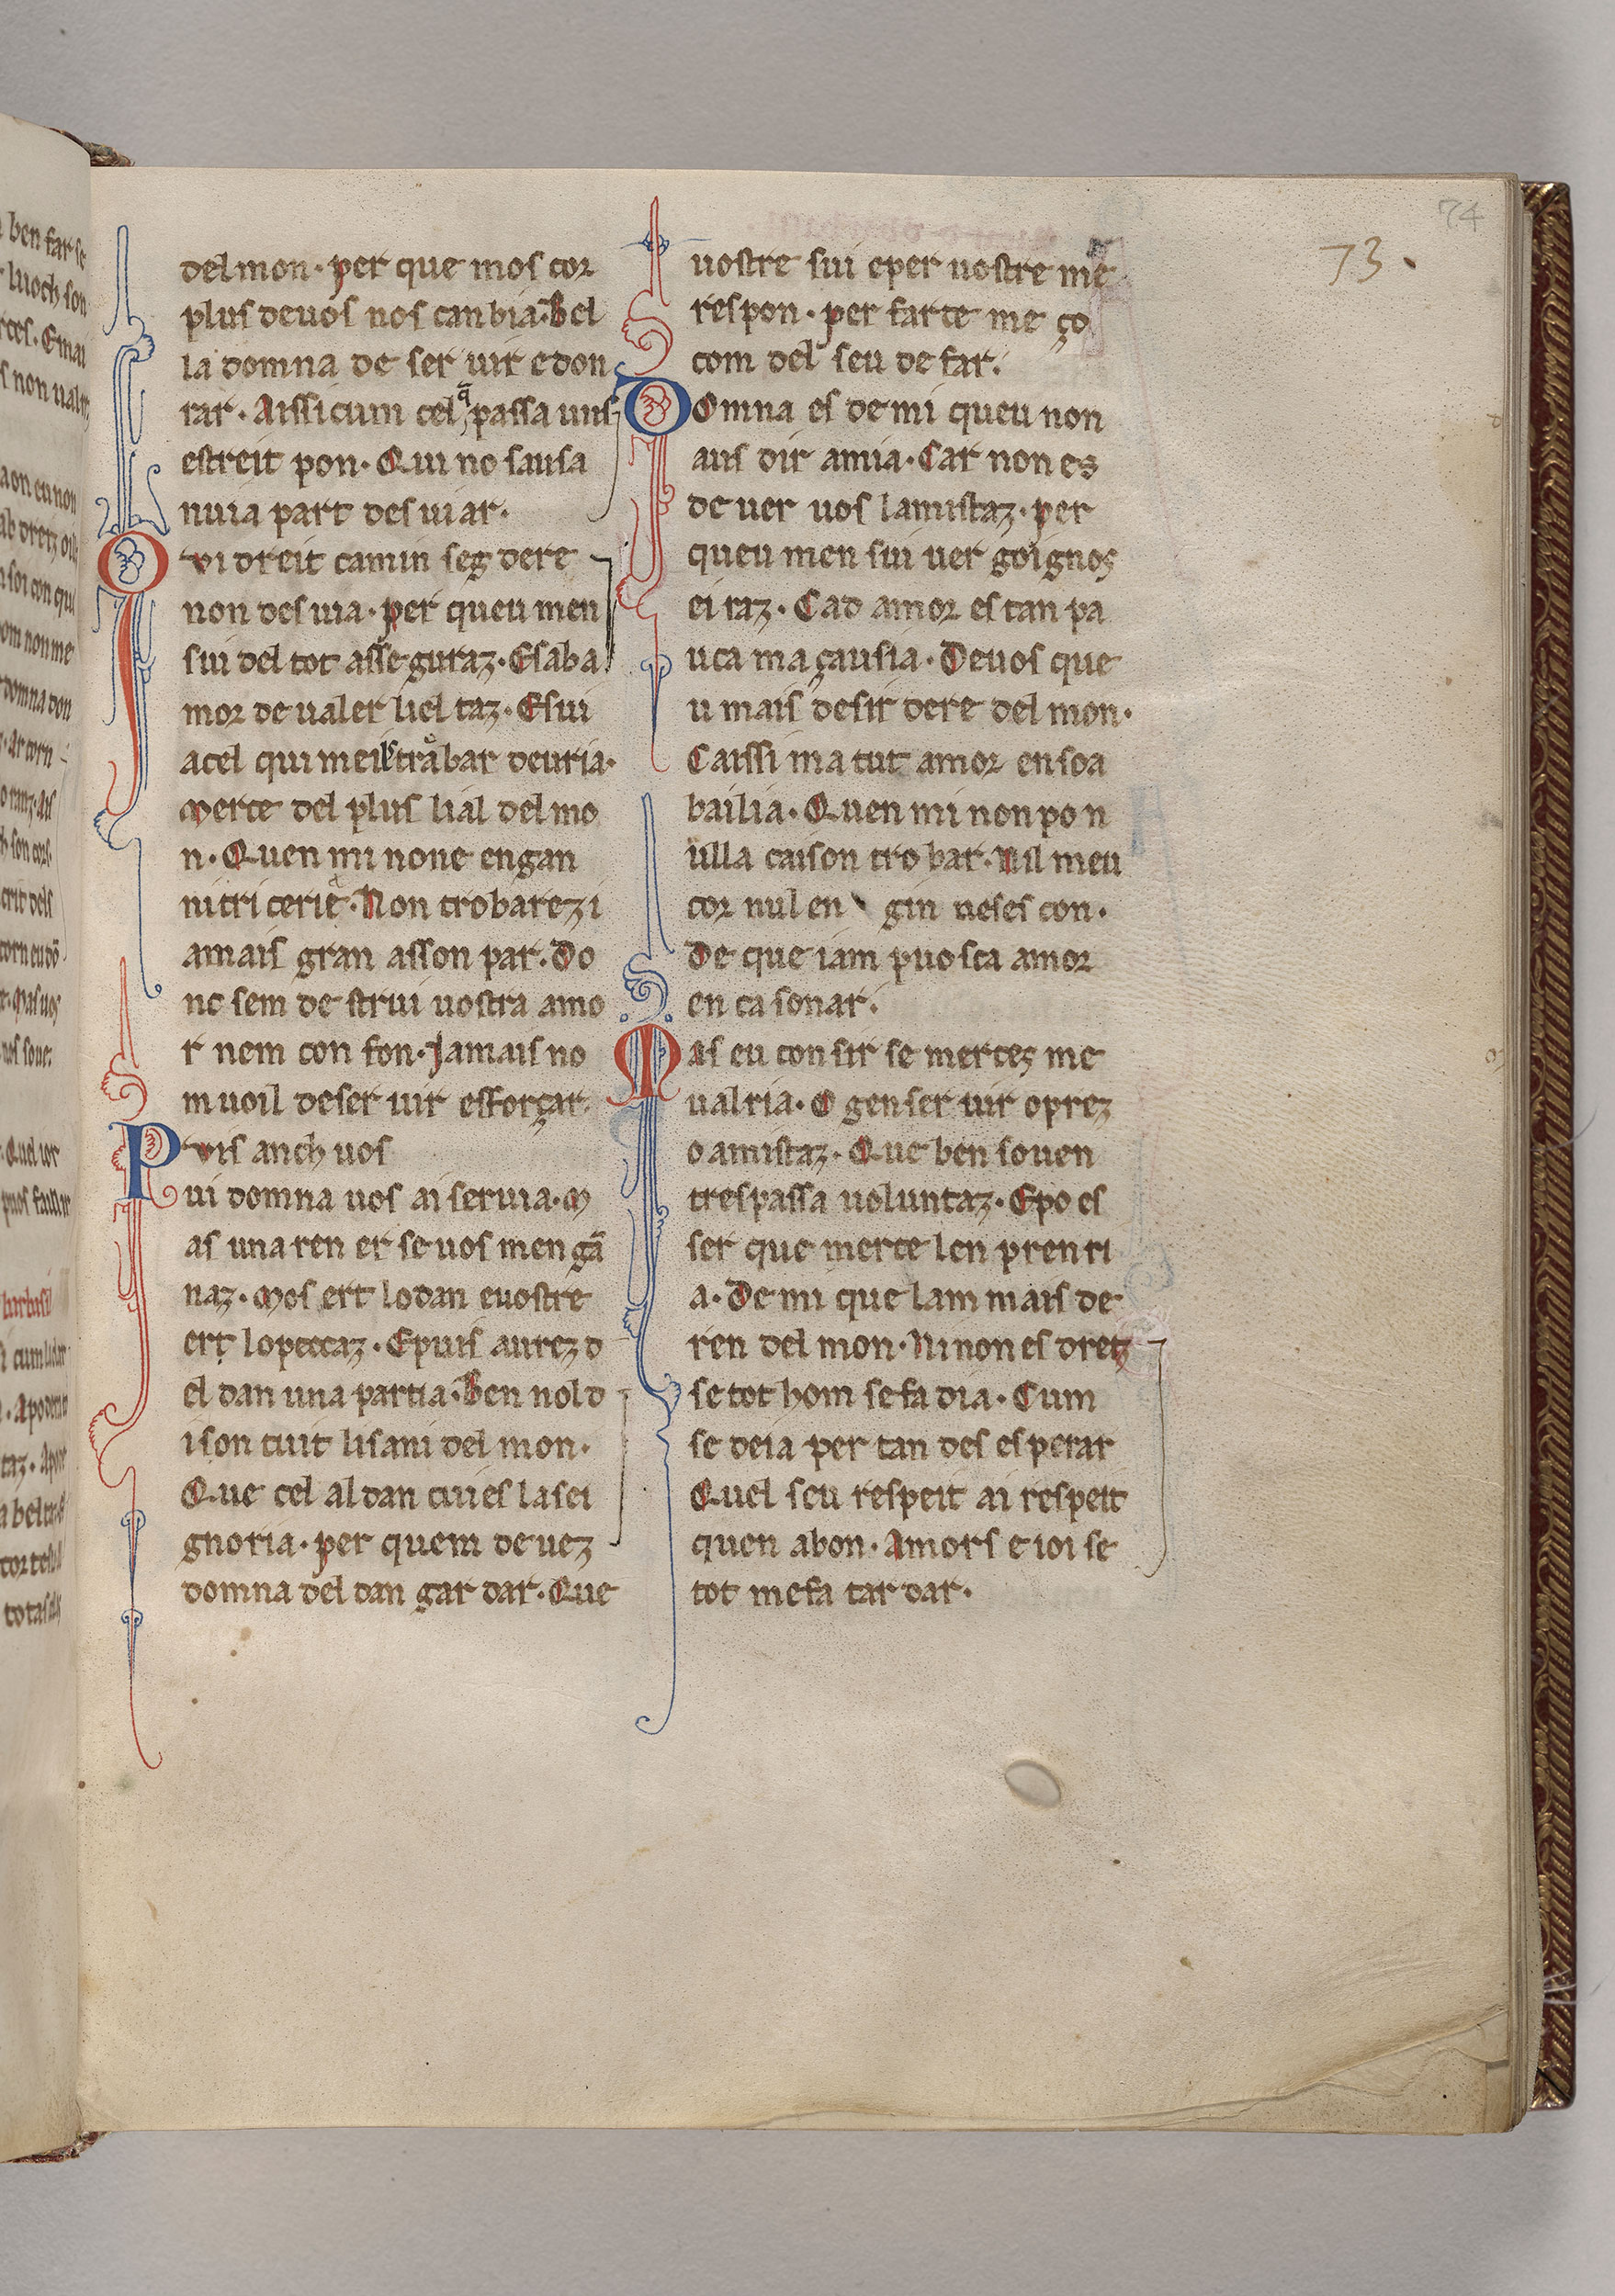 74
73.
del mon · per que mos cor
plus deuos nos canbia · Bel
la domna de ser uir e don
rar · Aissi cum cel q̄ passa uns
estreit pon · Qui no sausa
nuia part des uiar ·
Qui dreit camin seg dere
non des uia · per queu men
sui del tot asse guraz · E sab a
mor de ualer liel taz · E sui
acel qui meils trabar deuria ·
Merce del plus lial del mo
n · Quen mi non e engan
ni tri cerie · Non trobarez i
amais gran asson par · Do
nc sem de strui uostra amo
r nem con fon · Jamais no
m uoil deser uir esforçar ·
Puis anch uos
ui domna uos ai seruia · M
as una ren er se uos men gā
naz · Mos ert lo dan euostre
ert lo peccaz · E puis aurez d
el dan una partia · Ben nol d
ison tuit li sani del mon ·
Que cel al dan cui es la sei
gnoria · per quem deuez
domna del dan gar dar · Que
uostre sui eper uostre me
respon · per far ce me ço
com del seu de far ·
Domna es de mi queu non
aus dir amia · Car non es
de uer uos lamistaz · per
queu men sui uer goignos
ei raz · Cad amor es tan pa
uca ma çausia · Deuos que
u mais desir dere del mon ·
Caissi ma tut amor en soa
bailia · Quen mi non po n
ulla caison tro bar · Nil meu
cor nul en gin neses con ·
De que iam puosca amor
en ca sonar ·
Mas eu con sir se merces me
ualria · O gen ser uir o prez
o amistaz · Que ben souen
trespassa uoluntaz · E po es
ser que merce len pren ri
a · De mi que lam mais de
ren del mon · Ni non es dretz
se tot hom se fa dia · Cum
se deia per tan des es perar
Quel seu respeit ai respeit
quen abon · Amors e ioi se
tot me fa tar dar ·